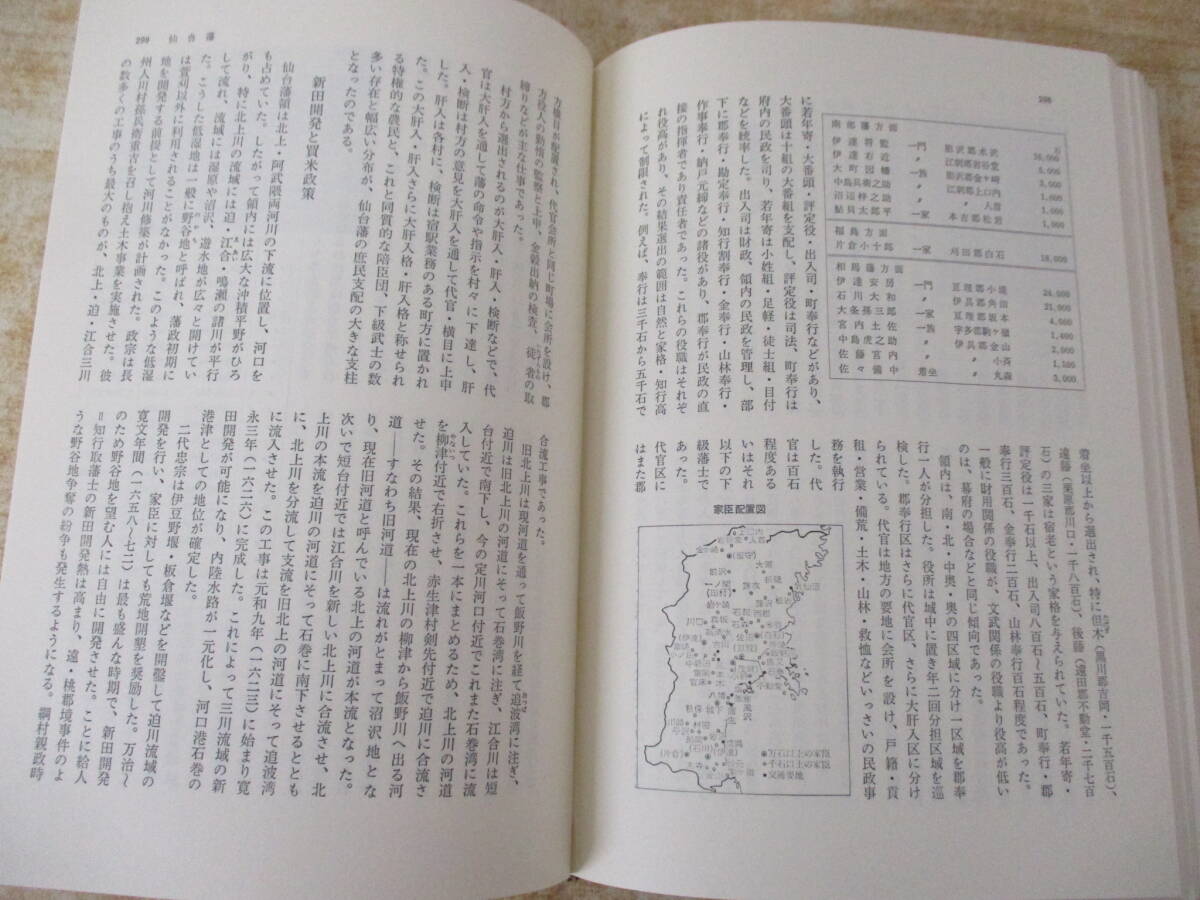 298
南部藩方面
石
伊達将監 一門 胆沢郡水沢 16,000
伊達右近 〃 江刺郡岩谷堂 5,000
大町因幡 一族 胆沢郡金ヶ崎 3,000
中島兵衛之助 〃 江刺郡上口内 1,000
沼辺梓之助 〃 〃 人首 1,000
鮎貝太郎平 一家 本吉郡松岩 1,000
福島方面
片倉小十郎 一家 刈田郡白石 18,000
相馬藩方面
伊達安房 一門 亘理郡小堤 24,000
石川大和 〃 伊具郡角田 21,000
大条孫三郎 一家 亘理郡坂本 4,000
宮内土佐 一族 宇多郡駒ヶ嶺 1,400
中島虎之助 〃 伊具郡金山 2,000
佐藤宮内 〃 〃 小斎 1,500
佐々備中 着坐 〃 丸森 3,000
に若年寄・大番頭、評定役・出入司・町奉行などがあり、
大番頭は十組の大番組を支配し、評定役は司法、町奉行は
府内の民政を司り、若年寄は小姓組・足軽・徒士組・目付
などを統率した。出入司は財政、領内の民政を管理し、部
下に郡奉行・勘定奉行・知行割奉行・金奉行・山林奉行・
作事奉行・納戸元締などの諸役があり、郡奉行が民政の直
接の指揮者であり責任者であった。これらの役職はそれぞ
れ役高があり、その結果選出の範囲は自然と家格・知行高
によって制限された。例えば、奉行は三千石から五千石で
着坐以上から選出され、特に但木（黒川郡吉岡・一千五百石）、
遠藤（栗原郡川口・一千八百石）、後藤（遠田郡不動堂・二千七百
石）の三家は宿老という家格を与えられていた。若年寄・
評定役は一千石以上、出入司八百石〜五百石、町奉行・郡
奉行三百石、金奉行二百石、山林奉行百石程度であった。
一般に財用関係の役職が、文武関係の役職より役高が低い
のは、幕府の場合などと同じ傾向であった。
領内は、南・北・中奥・奥の四区域に分け一区域を郡奉
行一人が分担した。役所は城中に置き年二回分担区域を巡
検した。郡奉行区はさらに代官区、さらに大肝入区に分け
られている。代官は地方の要地に会所を設け、戸籍・貢
租・営業・備荒・土木・山林・救恤などいっさいの民政事
務を執行
した。代
官は百石
程度ある
いはそれ
以下の下
級藩士で
あった。
代官区に
はまた郡
家臣配置図
万石以上の家臣
千石以上の家臣
交通要地
299 仙台藩
方横目が配置され、代官会所と同じ町場に会所を設け、郡
方役人の動情の監察と上申、金穀出納の検査、徒者の取
締りなどが主な仕事であった。
村方から選出されるのが大肝入・肝入・検断などで、代
官は大肝入を通して藩の命令や指示を村々に下達し、肝
入・検断は村方の意見を大肝入を通して代官・横目に上申
した。肝入は各村に、検断は宿駅業務のある町方に置かれ
た。この大肝入・肝入さらに大肝入格・肝入格と称せられ
る特権的な農民と、これと同質的な陪臣団、下級武士の数
多い存在と幅広い分布が、仙台藩の庶民支配の大きな支柱
となったのである。
新田開発と買米政策
仙台藩領は北上・阿武隈両河川の下流に位置し、河口を
も占めていた。したがって領内には広大な沖積平野がひろ
がり、特に北上川の流域には迫・江合・鳴瀬の諸川が平行
して流れ、流域には湿原や沼沢、遊水地が広々と開けてい
た。こうした低湿地は一般に野谷地と呼ばれ、藩政初期に
は萱刈以外に利用されることがなかった。このような低湿
地を開発する前提として河川修築が計画された。政宗は長
州人川村孫兵衛重吉を召し抱え土木事業を実施させた。彼
の数多くの工事のうち最大のものが、北上・迫・江合三川
合流工事であった。
旧北上川は現河道を通って飯野川を経て追波湾に注ぎ、
迫川は旧北上川の河道にそって石巻湾に注ぎ、江合川は短
台付近で南下し、今の定川河口付近でこれまた石巻湾に流
入していた。これらを一本にまとめるため、北上川の河道
を柳津付近で右折させ、赤生津村剣先付近で迫川に合流さ
せた。その結果、現在の北上川の柳津から飯野川へ出る河
道――すなわち旧河道――は流れがとまって沼沢地とな
り、現在旧河道と呼んでいる北上の河道が本流となった。
次いで短台付近では江合川を新しい北上川に合流させ、北
上川の本流を迫川の河道にそって石巻に南下させるととも
に、北上川を分流して支流を旧北上の河道にそって追波湾
に流入させた。この工事は元和九年（一六二三）に始まり寛
永三年（一六二六）に完成した。これによって三川流域の新
田開発が可能になり、内陸水路が一元化し、河口港石巻の
港津としての地位が確定した。
二代忠宗は伊豆野堰・板倉堰などを開鑿して迫川流域の
開発を行い、家臣に対しても荒地開墾を奨励した。万治〜
寛文年間（一六五八〜七二）は最も盛んな時期で、新田開発
のため野谷地を望む人には自由に開発させた。ことに給人
＝知行取藩士の新田開発熱は高まり、遠・桃郡境事件のよ
うな野谷地争奪の紛争も発生するようになる。綱村親政時